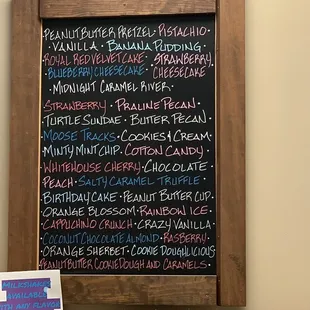 PEANUT BUTTER PRETZEL · PISTACHIO
· VANILLA · BANANA PUDDING ·
ROYAL RED VELVET CAKE · STRAWBERRY
BLUEBERRY CHEESECAKE · CHEESECAKE
· MIDNIGHT CARAMEL RIVER ·
STRAWBERRY · PRALINE PECAN ·
TURTLE SUNDAE · BUTTER PECAN ·
MOOSE TRACKS · COOKIES & CREAM
MINTY MINT CHIP · COTTON CANDY ·
WHITEHOUSE CHERRY · CHOCOLATE ·
PEACH · SALTY CARAMEL TRUFFLE ·
BIRTHDAY CAKE · PEANUT BUTTER CUP ·
ORANGE BLOSSOM · RAINBOW ICE ·
CAPPUCHINO CRUNCH · CRAZY VANILLA ·
COCONUT CHOCOLATE ALMOND · RASBERRY ·
ORANGE SHERBET · COOKIE DOUGHLICIOUS
PEANUT BUTTER COOKIE DOUGH AND CARAMELS ·
MILKSHAKES
AVAILABLE
WITH ANY FLAVOR